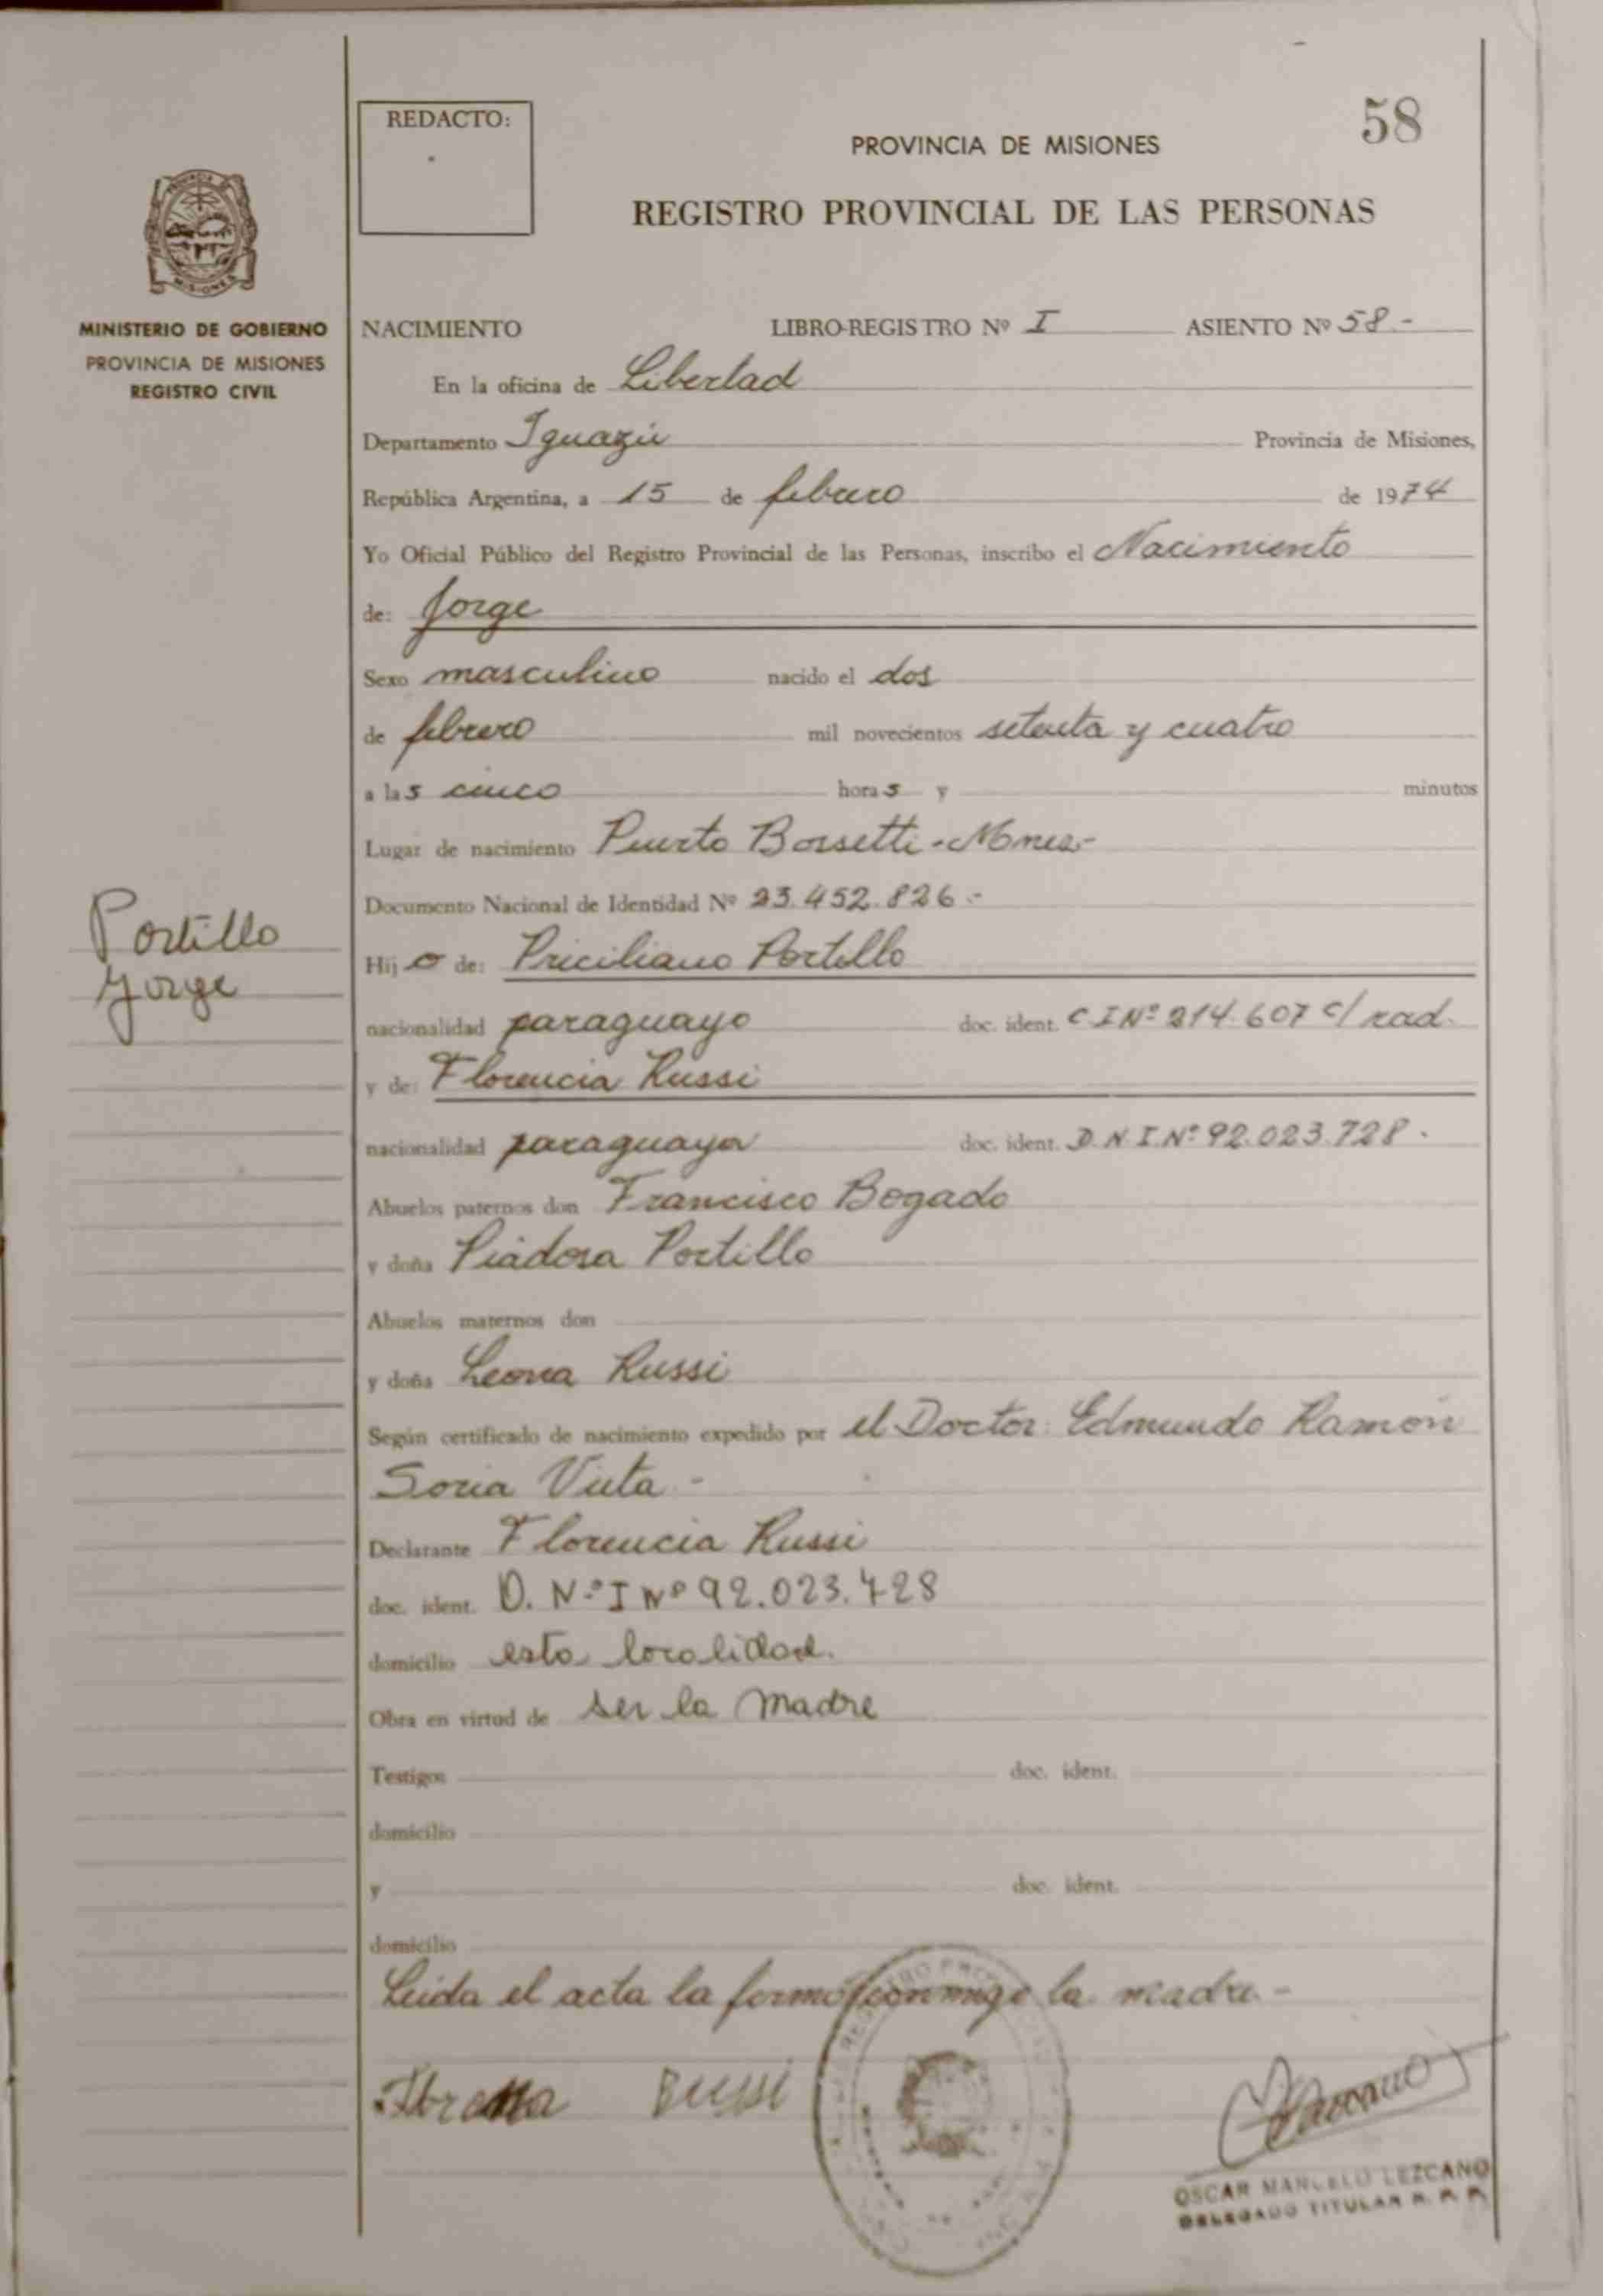 REDACTO:
58
PROVINCIA DE MISIONES
REGISTRO PROVINCIAL DE LAS PERSONAS
MISIONES
MINISTERIO DE GOBIERNO
PROVINCIA DE MISIONES
REGISTRO CIVIL
NACIMIENTO LIBRO-REGISTRO Nº I ASIENTO Nº 58.-
En la oficina de Libertad
Departamento Iguazú Provincia de Misiones,
República Argentina, a 15 de febrero de 1974
Yo Oficial Público del Registro Provincial de las Personas, inscribo el Nacimiento
de: Jorge
Sexo masculino nacido el dos
de febrero mil novecientos setenta y cuatro
a las cinco horas y minutos
Lugar de nacimiento Puerto Bossetti - Mnes.-
Documento Nacional de Identidad Nº 23.452.826.-
Portillo
Jorge
Hijo de: Priciliano Portillo
nacionalidad paraguayo doc. ident. C I Nº 214.607 c/ rad.
y de: Florencia Russi
nacionalidad paraguaya doc. ident. D.N.I.Nº 92.023.728.
Abuelos paternos don Francisco Bogado
y doña Piadosa Portillo
Abuelos maternos don
y doña Leona Russi
Según certificado de nacimiento expedido por el Doctor: Edmundo Ramón
Soria Vieta -
Declarante Florencia Russi
doc. ident. D. Nº I Nº 92.023.728
domicilio esta localidad.
Obra en virtud de ser la madre
Testigos doc. ident.
domicilio
y doc. ident.
domicilio
Leida el acta la firmó conmigo la madre.-
Russi
OSCAR MARCELO LEZCANO
DELEGADO TITULAR R. P. P.